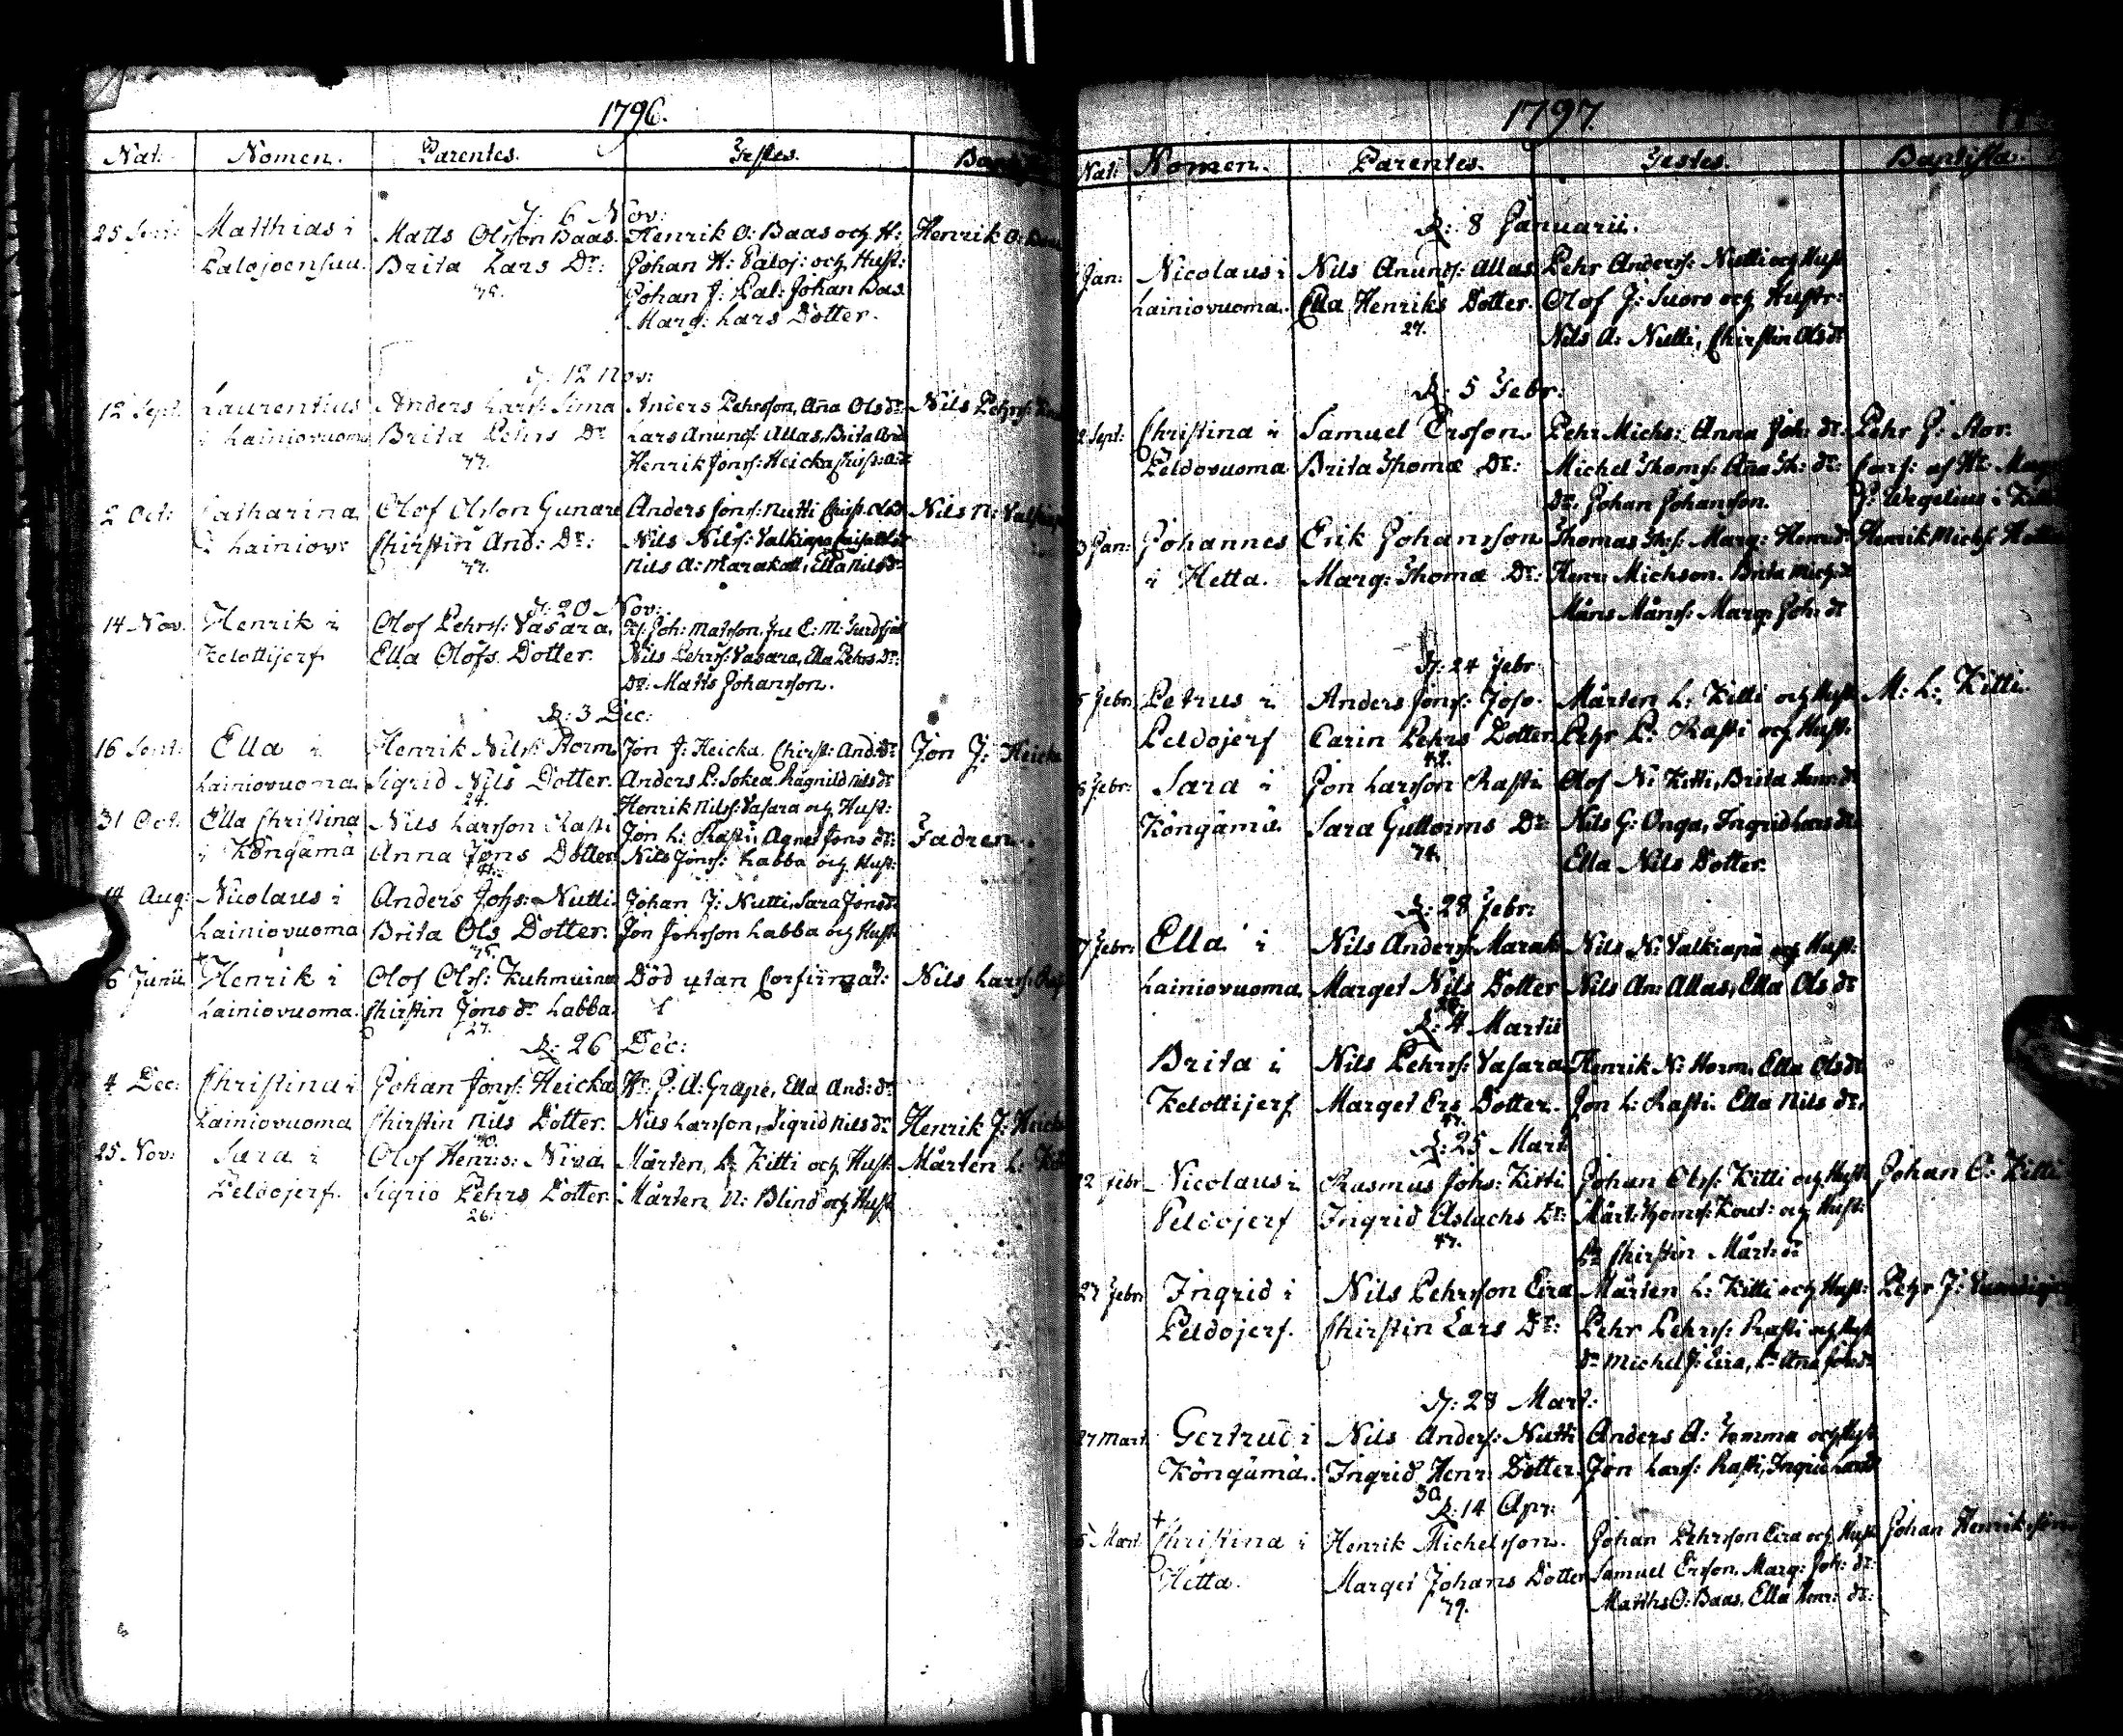 1796.
Nat: Nomen. Parentes. Testes.
D: 6 Nov:
Matthias i Matts Olsson Baas. Henrik O: Baas och H: Henrik O:
Palojoensuu. Brita Lars Dr: Johan H: Paloj: och Hust:
Johan J: Pal: Johan Bas
Marg: Lars Dotter.
D: 12 Nov:
12 Sept. Laurentius Anders Larss: Sima Anders Pehrsson, Ana Olsdr Nils Pehrs:
i Lainiovuoma Brita Pehrs Dr Lars Anunds: Allas, Brita And
77. Henrik Jonss: Heicka
2 Oct: Catharina Olof Olsson Gunare Anders Jons: Nutti Olsdr Nils N:
i Lainiov: Chirstin And: Dr: Nils Nilss: Valkiapa
77. Nils A: Marakatt, Ella Nilsdr
D: 20 Nov:
14 Nov. Henrik i Olof Pehrs: Vasara. Joh: Matsson, Fru C: M:
Kelottijerf Ella Olofs Dotter. Nils Pehrs: Vasara, Ella Pehrs Dr:
Dr: Matts Johansson.
D: 3 Dec:
16 Sept: Ella i Henrik Nilss: Horm Jon J: Heicka. Chirst: And: dr Jon J: Heicka
Lainiovuoma. Sigrid Nils Dotter. Anders P: Sokea, Ragnild Nils dr
24. Henrik Nilss: Vasara och Hust:
31 Oct: Ella Christina Nils Larsson Rasti Jon L: Rasti, Agnes Jons dr: Fadren.
i Köngämä Anna Jons Dotter Nils Jonss: Labba och Hust:
14 Aug: Nicolaus i Anders Johs: Nutti. Johan J: Nutti, Sara Jonsdr
Lainiovuoma Brita Ols Dotter. Jon Jonsson Labba och Hust
6 Junii Henrik i Olof Olss: Kuhmuinen Död utan Confirmat: Nils Larss:
Lainiovuoma. Chirstin Jons dr Labba.
27.
D: 26 Dec:
4 Dec: Christina i Johan Jonss: Heicka Hr. J: A: Grape, Ella And: dr
Lainiovuoma Chirstin Nils Dotter. Nils Larsson, Sigrid Nils dr Henrik J: Heicka
25 Nov: Sara i Olof Henr:s: Niva Mårten L: Kitti och Hust Mårten L: Kitti
Peldojerf. Sigrid Pehrs Dotter. Mårten N: Blind och Hust
26.
1797.
Nat: Nomen. Parentes. Testes. Baptista:
D: 8 Januarii.
Jan: Nicolaus i Nils Anunds: Allas. Pehr Anders: Nutti och Hust
Lainiovuoma. Ella Henriks Dotter. Olof J: Suoro och Hustr:
27. Nils A: Nutti, Chirstin Olsdr
D: 5 Febr:
Sept: Christina i Samuel Ersson. Pehr Michs: Anna Joh: dr: Pehr J: Stor.
Peldovuoma Brita Thomæ Dr: Michel Thoms: Ana Th: dr: Conf: af Hr: Mag
Dr. Johan Johansson. J: Wegelius i
Jan: Johannes Erik Johansson Thomas Marg: Henrdr Henrik Michs: Hetta
i Hetta. Marg: Thomæ Dr: Henr: Michson. Brita Mich: dr
Måns Månss: Marg: Joh: dr
D: 24 Febr
Febr: Petrus i Anders Jonss: Joso. Mårten L: Kitti och Hust M: L: Kitti.
Peldojerf Carin Pehrs Dotter Pehr P: Rasti och Hust:
Febr: Sara i Jon Larsson Rasti Olof N: Kitti, Brita Henr: dr
Köngämä. Sara Guttorms Dr Nils G: Onga, Ingrid Lars dr
74. Ella Nils Dotter.
D: 28 Febr:
7 Febr: Ella i Nils Anders: Marak: Nils N: Valkiapä och Hust:
Lainiovuoma. Marget Nils Dotter Nils An: Allas, Ella Ols dr
D: 4 Martii
Brita i Nils Pehrs: Vasara Henrik N: Horm, Ella Olsdr
Kelottijerf Marget Ers Dotter. Jon L: Rasti. Ella Nils dr.
D: 25 Mart
22 Febr Nicolaus i Rasmus Johs: Kitti Johan Olss: Kitti och Hust Johan O: Kitti
Peldojerf Ingrid Aslachs Dr: Mårt: Thoms: Kout: och Hust:
47. Chirstin Mårt: dr
27 Febr: Ingrid i Nils Pehrsson Eira Mårten L: Kitti och Hust: Pehr J:
Peldojerf. Chirstin Lars Dr: Pehr Pehrs: Rasti och Hust
Dr Michel J: Eira, Ana
D: 28 Mart:
27 Mart Gertrud i Nils Anders: Nutti Anders A: Tomma och Hust
Köngämä. Ingrid Henr: Dotter. Jon Larss: Rasti, Ingrid Larsdr
30
D: 14 Apr:
Mart Christina i Henrik Michelsson. Johan Pehrsson Eira och Hust Johan Henriksson
Hetta. Marget Johans Dotter Samuel Ersson, Marg: Joh: dr:
79. Matths O: Baas, Ella Henr: dr: